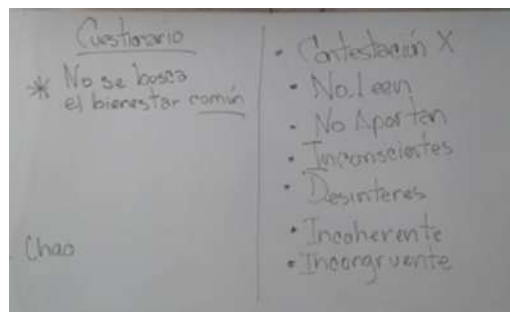 Cuestionario
* No se busca
el bienestar común
Chao
• Contestación X
• No leen
• No Aportan
• Inconscientes
• Desinteres
• Incoherente
• Incongruente